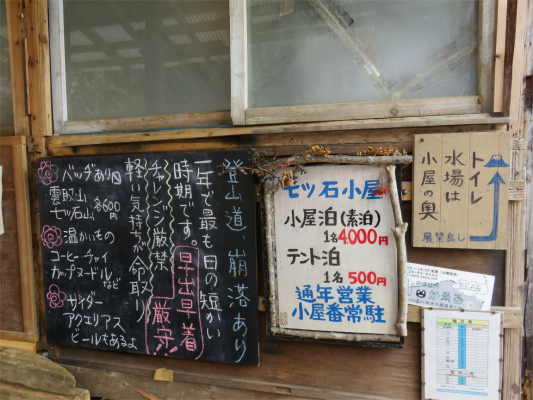 登山道、崩落あり
一年で最も日の短かい
時期です。早出早着
チャレンジ厳禁 厳守
軽い気持ちが命取り
バッヂあり〼
雲取山
七ツ石山 各600円
温かいもの
コーヒーチャイ
カップヌードルなど
サイダー
アクエリアス
ビールもあるよ
七ツ石小屋
小屋泊(素泊)
1名4000円
テント泊
1名500円
通年営業
小屋番常駐
トイレ
水場は
小屋の奥
展禁良し